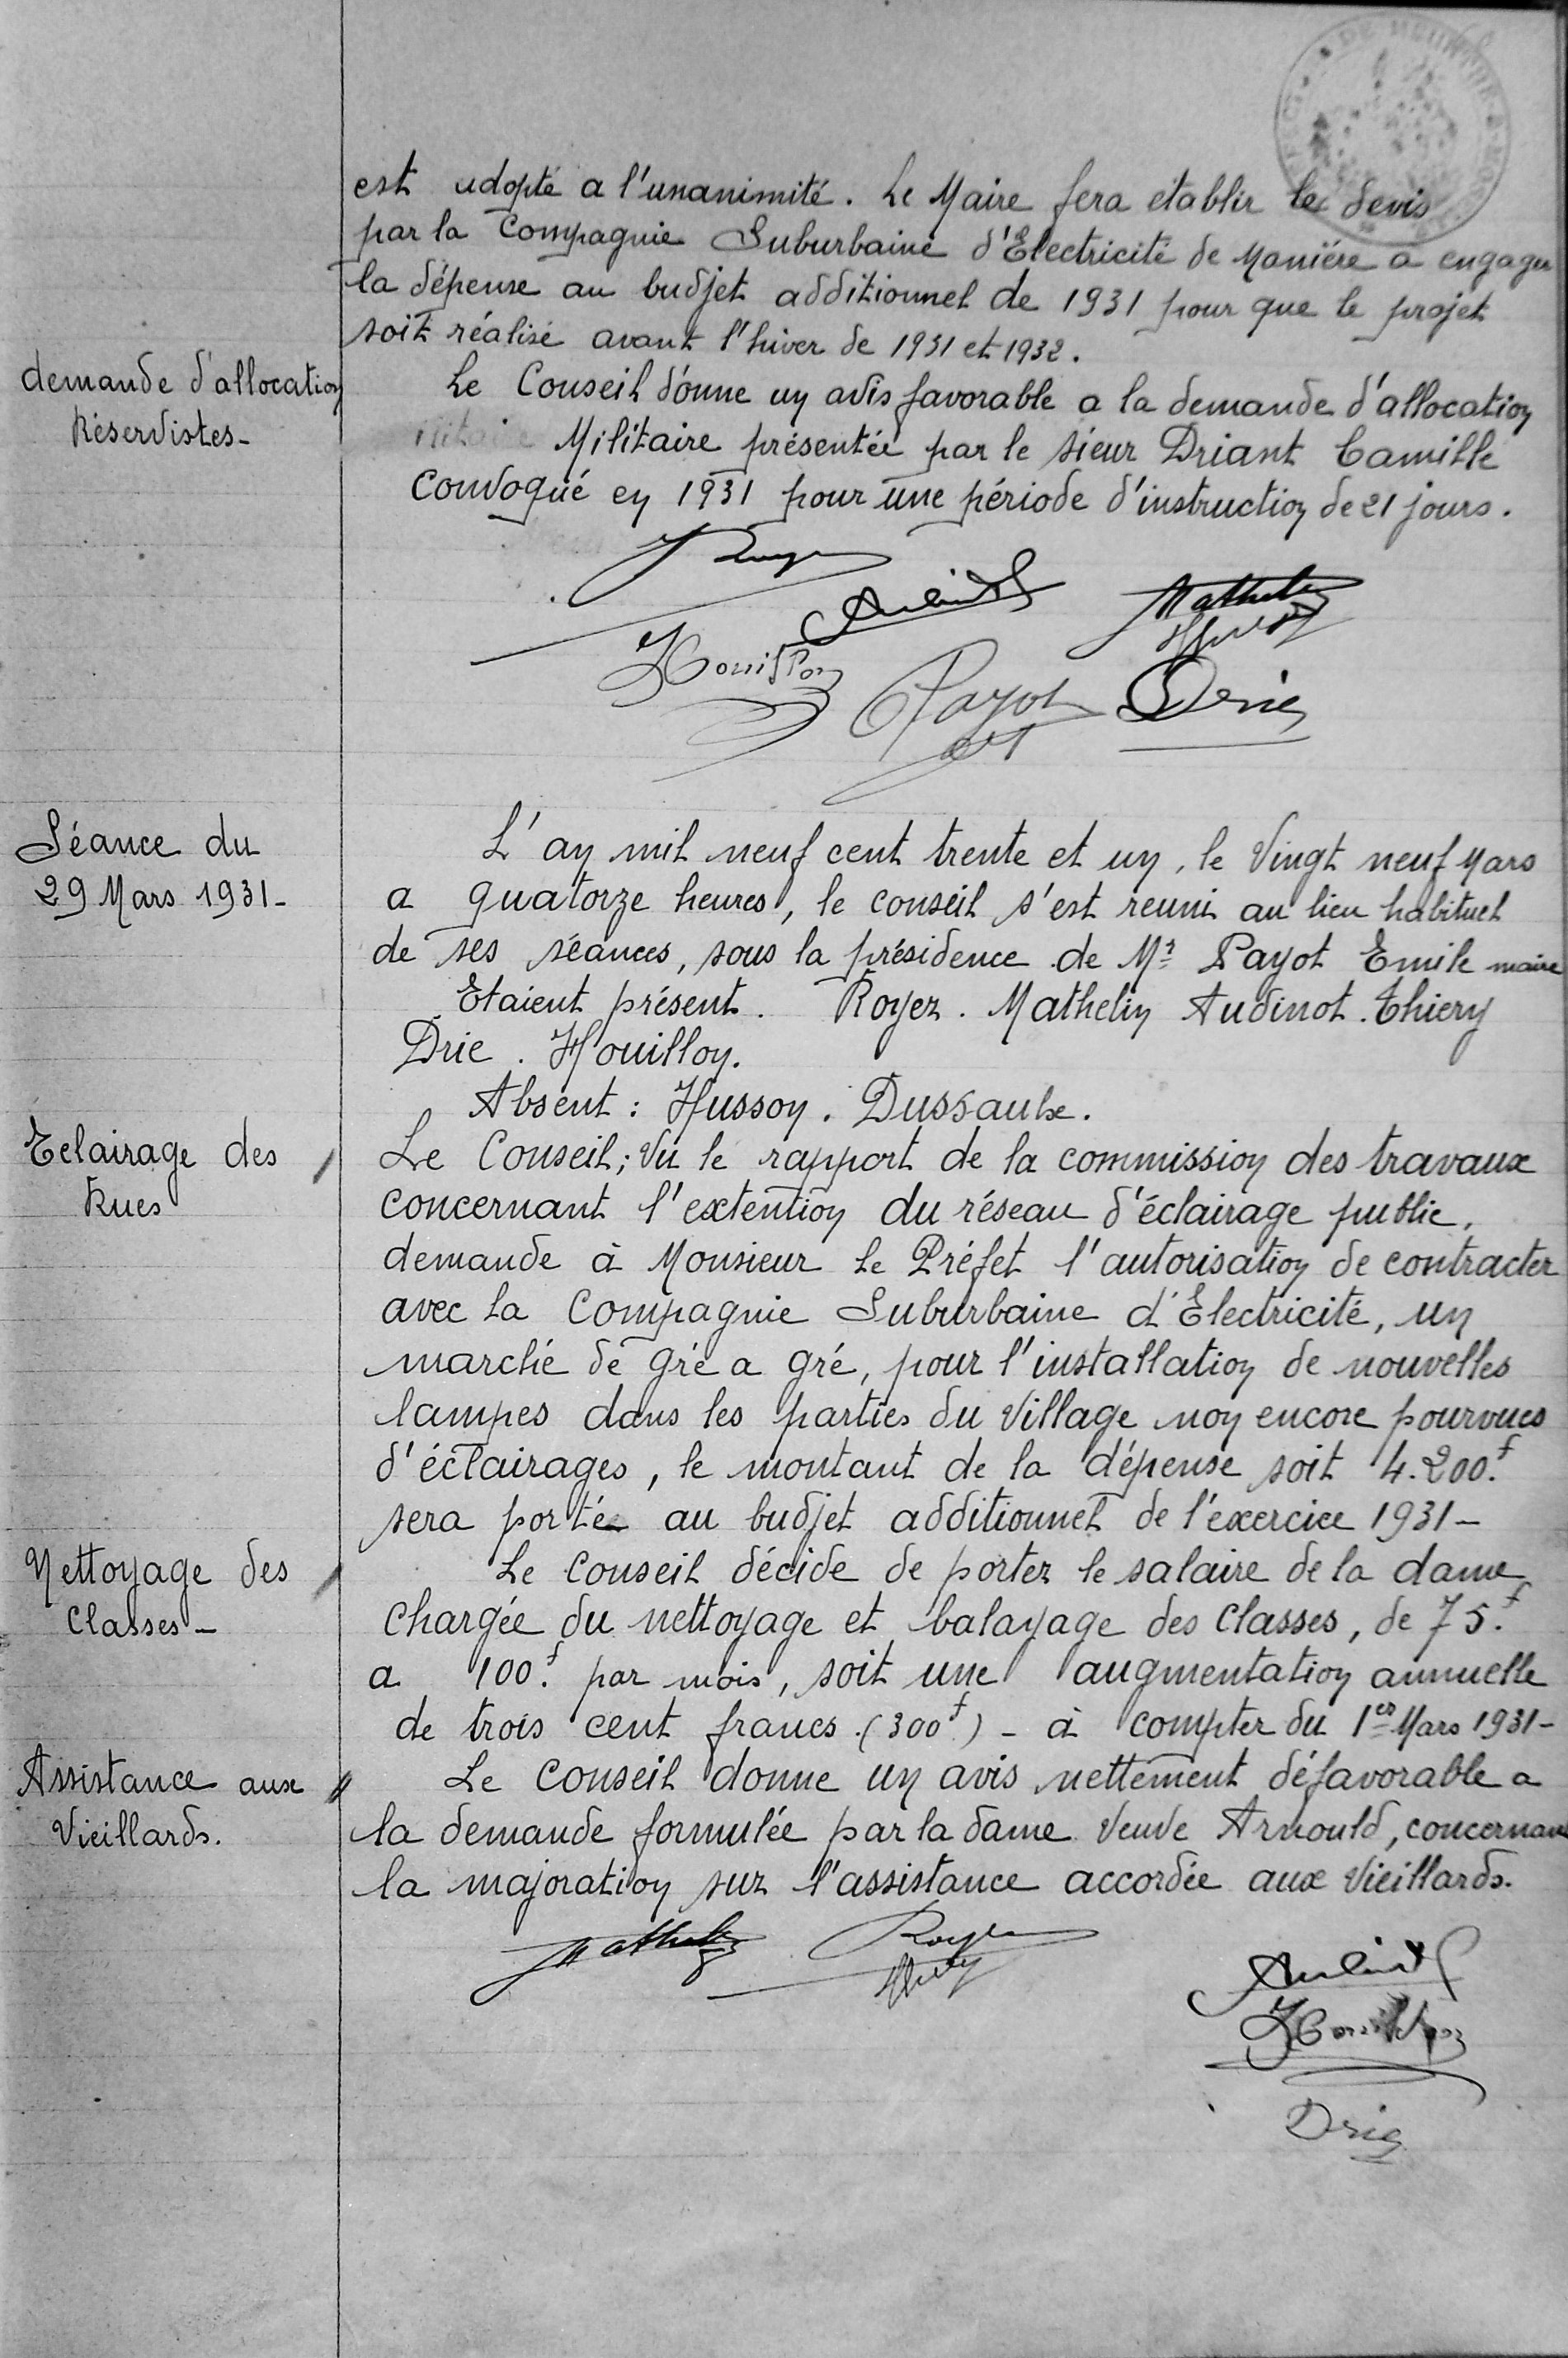 est adopté a l'unanimité. Le Maire fera établir le devis
par la Compagnie Suburbaine d'Electricité de Manière a engager
la dépense au budjet additionnel de 1931 pour que le projet
soit réalisé avant l'hiver de 1931 et 1932.
demande d'allocation
Réservistes-
Le Conseil donne un avis favorable a la demande d'allocation
Militaire présentée par le sieur Driant Camille
Convoqué en 1931 pour une période d'instruction de 21 jours.
Royer
Audinot Mathelin
Houillon Payot Drie
Séance du
29 Mars 1931-
L'an mil neuf cent trente et un, le Vingt neuf Mars
a quatorze heures, le conseil s'est reuni au lieu habituel
de ses séances, sous la présidence de Mr Payot Emile maire
Etaient présent. Royer. Mathelin Audinot. Thiery
Drie. Houillon.
Absent : Husson. Dussaulx.
Eclairage des
Rues
Le Conseil; Vu le rapport de la commission des travaux
concernant l'extention du réseau d'éclairage public,
demande à Monsieur Le Préfet l'autorisation de contracter
avec La Compagnie Suburbaine d'Electricité, un
marché de gré a gré, pour l'installation de nouvelles
lampes dans les parties du Village non encore pourvues
d'éclairages, le montant de la dépense soit 4.200.f
sera portée au budjet additionnel de l'éxercice 1931-
Nettoyage des
Classes-
Le Conseil décide de porter le salaire de la dame
chargée du nettoyage et balayage des Classes, de 75.f
a 100.f par mois, soit une augmentation annuelle
de trois cent francs (300f) - à compter du 1er Mars 1931-
Assistance aux
Vieillards.
Le Conseil donne un avis nettement défavorable a
la demande formulée par la dame Veuve Arnould, concernant
la majoration sur l'assistance accordée aux Vieillards.
Mathelin Royer
Thiery
Audinot
Houillon
Drie